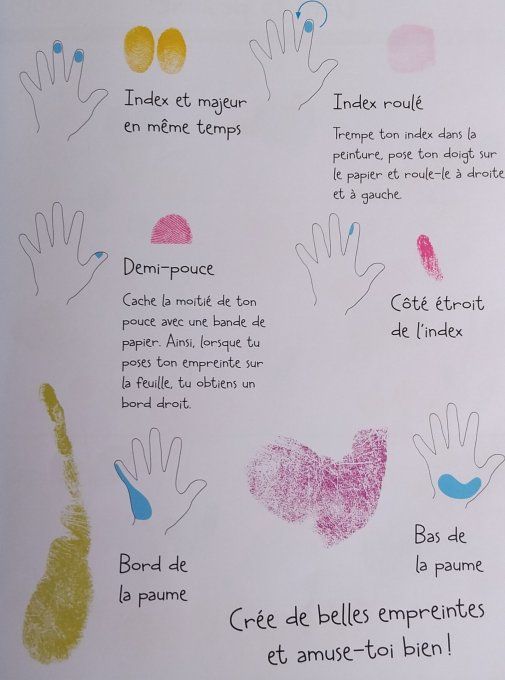 Index et majeur
en même temps
Index roulé
Trempe ton index dans la
peinture, pose ton doigt sur
le papier et roule-le à droite
et à gauche.
Demi-pouce
Cache la moitié de ton
pouce avec une bande de
papier. Ainsi, lorsque tu
poses ton empreinte sur
la feuille, tu obtiens un
bord droit.
Côté étroit
de l'index
Bord de
la paume
Bas de
la paume
Crée de belles empreintes
et amuse-toi bien !